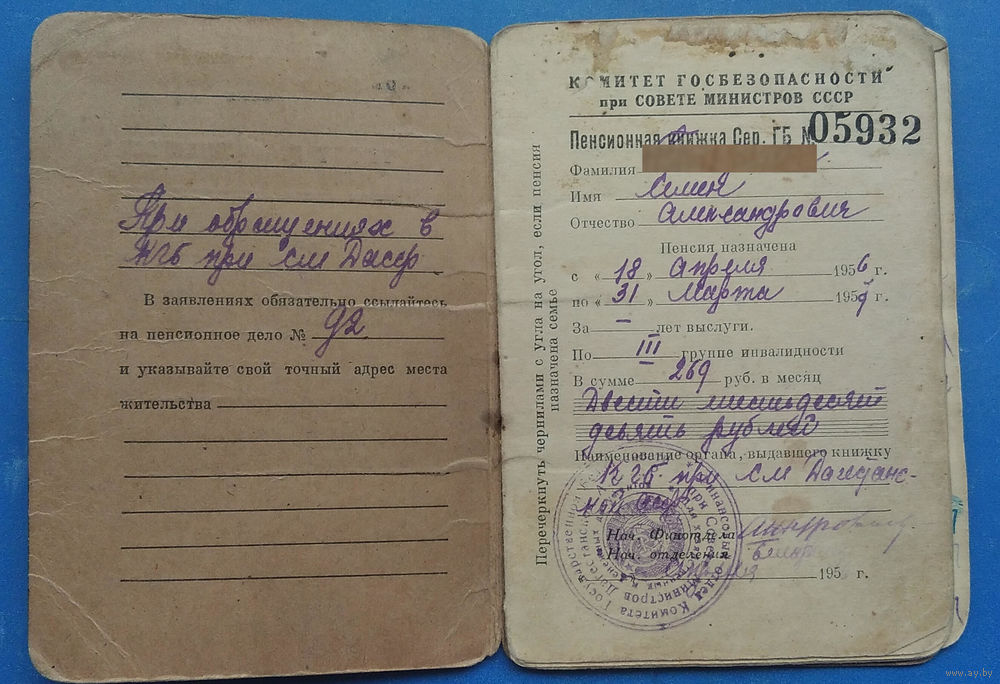 При обращениях в
КГБ при СМ Дасср
В заявлениях обязательно ссылайтесь
на пенсионное дело № 92
и указывайте свой точный адрес места
жительства
КОМИТЕТ ГОСБЕЗОПАСНОСТИ
при СОВЕТЕ МИНИСТРОВ СССР
Пенсионная книжка Сер. ГБ № 05932
Фамилия
Имя Семен
Отчество Александрович
Пенсия назначена
с «18» Апреля 1956 г.
по «31» Марта 1957 г.
За — лет выслуги.
По III группе инвалидности
В сумме 269 руб. в месяц
Двести шестьдесят
девять рублей
Наименование органа, выдавшего книжку
КГБ при СМ Дагестанс-
кой асср
Нач. Финотдела
Нач. отделения
195 г.
Перечеркнуть чернилами с угла на угол, если пенсия
назначена семье
www.ay.by